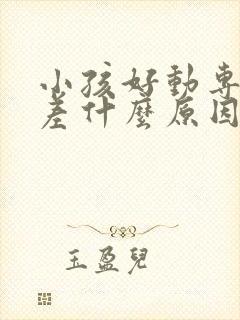 小孩好動專
差什麼原因
玉盈兒